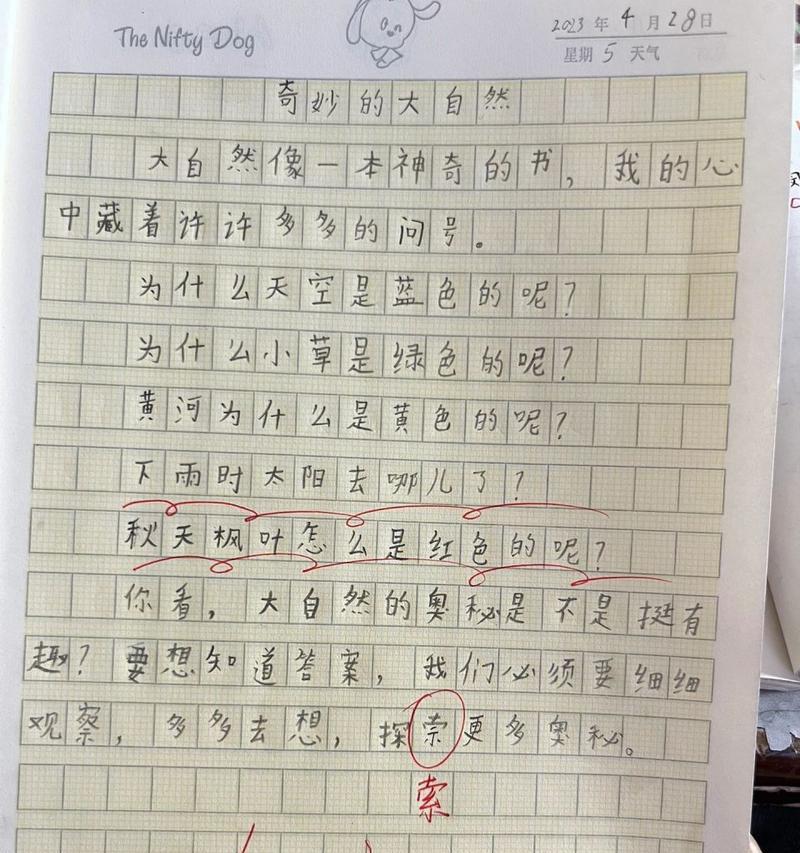 The Nifty Dog
2023年4月28日
星期5 天气
奇妙的大自然
大自然像一本神奇的书，我的心
中藏着许许多多的问号。
为什么天空是蓝色的呢？
为什么小草是绿色的呢？
黄河为什么是黄色的呢？
下雨时太阳去哪儿了？
秋天枫叶怎么是红色的呢？
你看，大自然的奥秘是不是挺有
趣？要想知道答案，我们必须要细细
观察，多多去想，探索更多奥秘。
索